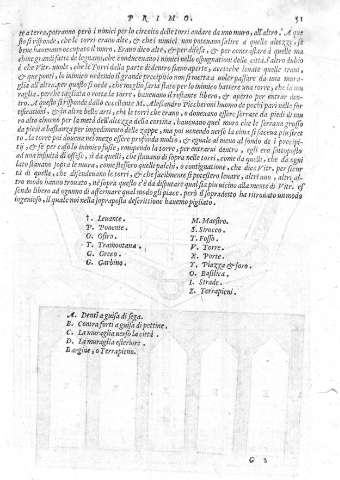 PRIMO. 51
te a terra, potranno però i nimici per lo circoito delle torri andare da uno muro, all'altro. A que
sto si risponde, che le torri erano alte, & che i nimici non potevano salire a quelle altezze, se
bene havessero occupato il muro. Erano dico alte, & per difesa, & per cenere quelle ma
chine grandi fatte di legname, che conducevano i nimici nelle espugnationi delle città.
è che Vitr. vuole, che le Torri dalla parte di dentro siano aperte,
& que ponti, lo inimico vedendo il gran precipitio non si metta a voler passare da una mura-
glia all'altra, per
raglia, perche tagliata o rotta la torre, havevano il restante libero, & aperto per entrar den-
tro. A questo si risponde dallo eccellente M. Alessandro Picheroni huomo de pochi pari nelle for
tificationi, & in altre belle arti, che le torri che erano, o dovevano essere serrate da piedi di mu
ro alto almeno per la metà dell'altezza della cortina, havevano quel muro che le serrava grosso
da piedi a bastanza per impedimento delle zappe, ma poi venendo verso la cima si faceva piu stret
to. le torri poi dovevano nel mezo essere profonde molto, & eguale al meno al fondo de i precipi-
tij, & se per caso lo inimico fusse, rompendo la torre, per entrarvi dentro, egli era sottoposto
ad una infinità di offese, sì da quelli, che stavano di sopra nelle torri, come da quelli, che da ogni
lato stavano sopra le mura, come fossero quelli palchi, o contignationi, che dice Vitr. per sicur
tà di quelli, che difendevano le torri, & che facilmente si potessero levare, altri uno, altri al-
tro modo hanno trovato, né sopra questo c'è da disputare qual sia piu vicino alla mente di Vitr. es
sendo libero ad ogniuno di assermare quel modo gli piace, però il sopradetto ha ritrovato un modo
ingenioso, il qual noi nella soprapposta descrittione havemo pigliato.
L. Levante.
P. Ponente.
O. Ostro.
T. Tramontana.
G. Greco.
G. Garbino.
M. Maestro.
S. Sirocco.
T. Fosso.
V. Torre.
X. Porte.
Y. Piazza & foro.
O. Basilica.
I. Strade.
Z. Terrapieni.
A. Denti a guisa di sega.
B. Contraforti a guisa di pettine.
C. La muraglia verso la città.
D. La muraglia esteriore.
E. argine, o Terrapieno.
G 2